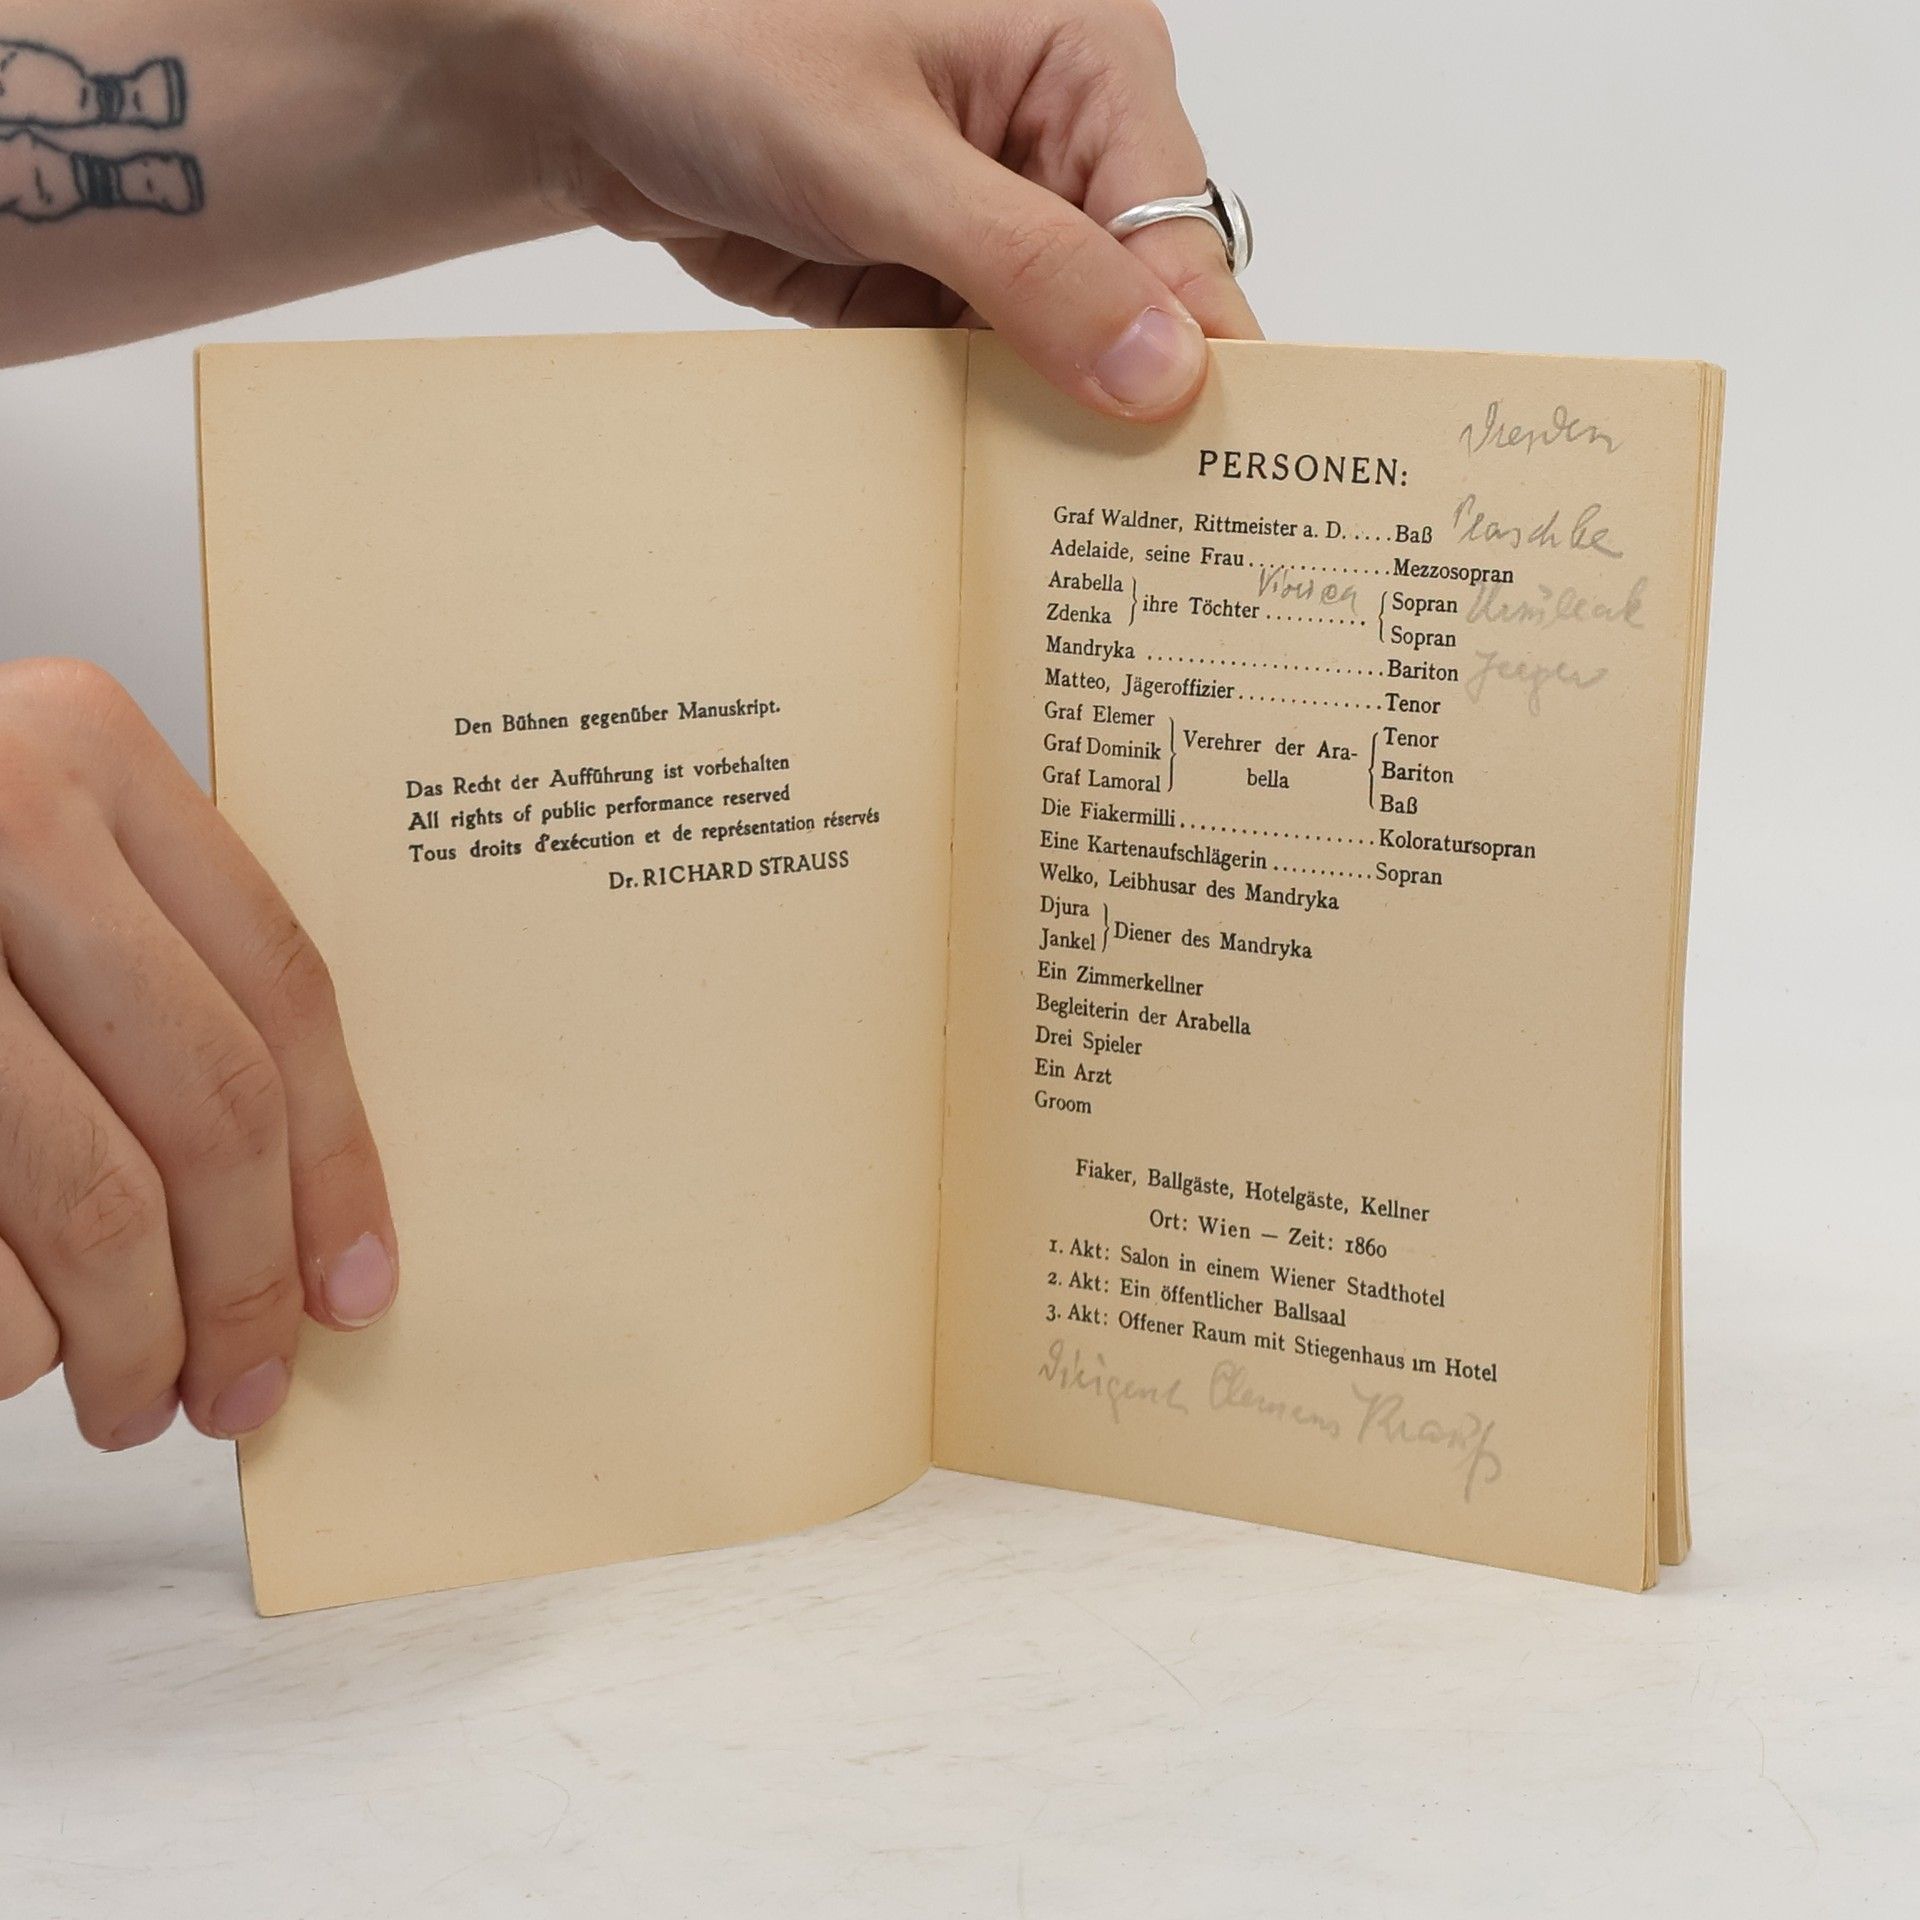 Den Bühnen gegenüber Manuskript.
Das Recht der Aufführung ist vorbehalten
All rights of public performance reserved
Tous droits d'exécution et de représentation réservés
Dr. RICHARD STRAUSS
Dresden
PERSONEN:
Graf Waldner, Rittmeister a. D. ..... Baß Plaschke
Adelaide, seine Frau .............. Mezzosopran
Viorica
Arabella } ihre Töchter .......... { Sopran Ursuleac
Zdenka Sopran
Mandryka ........................ Bariton Jerger
Matteo, Jägeroffizier .............. Tenor
Graf Elemer Tenor
Graf Dominik } Verehrer der Ara- { Bariton
Graf Lamoral bella Baß
Die Fiakermilli .................... Koloratursopran
Eine Kartenaufschlägerin ........... Sopran
Welko, Leibhusar des Mandryka
Djura } Diener des Mandryka
Jankel
Ein Zimmerkellner
Begleiterin der Arabella
Drei Spieler
Ein Arzt
Groom
Fiaker, Ballgäste, Hotelgäste, Kellner
Ort: Wien — Zeit: 1860
1. Akt: Salon in einem Wiener Stadthotel
2. Akt: Ein öffentlicher Ballsaal
3. Akt: Offener Raum mit Stiegenhaus im Hotel
Dirigent Clemens Krauß